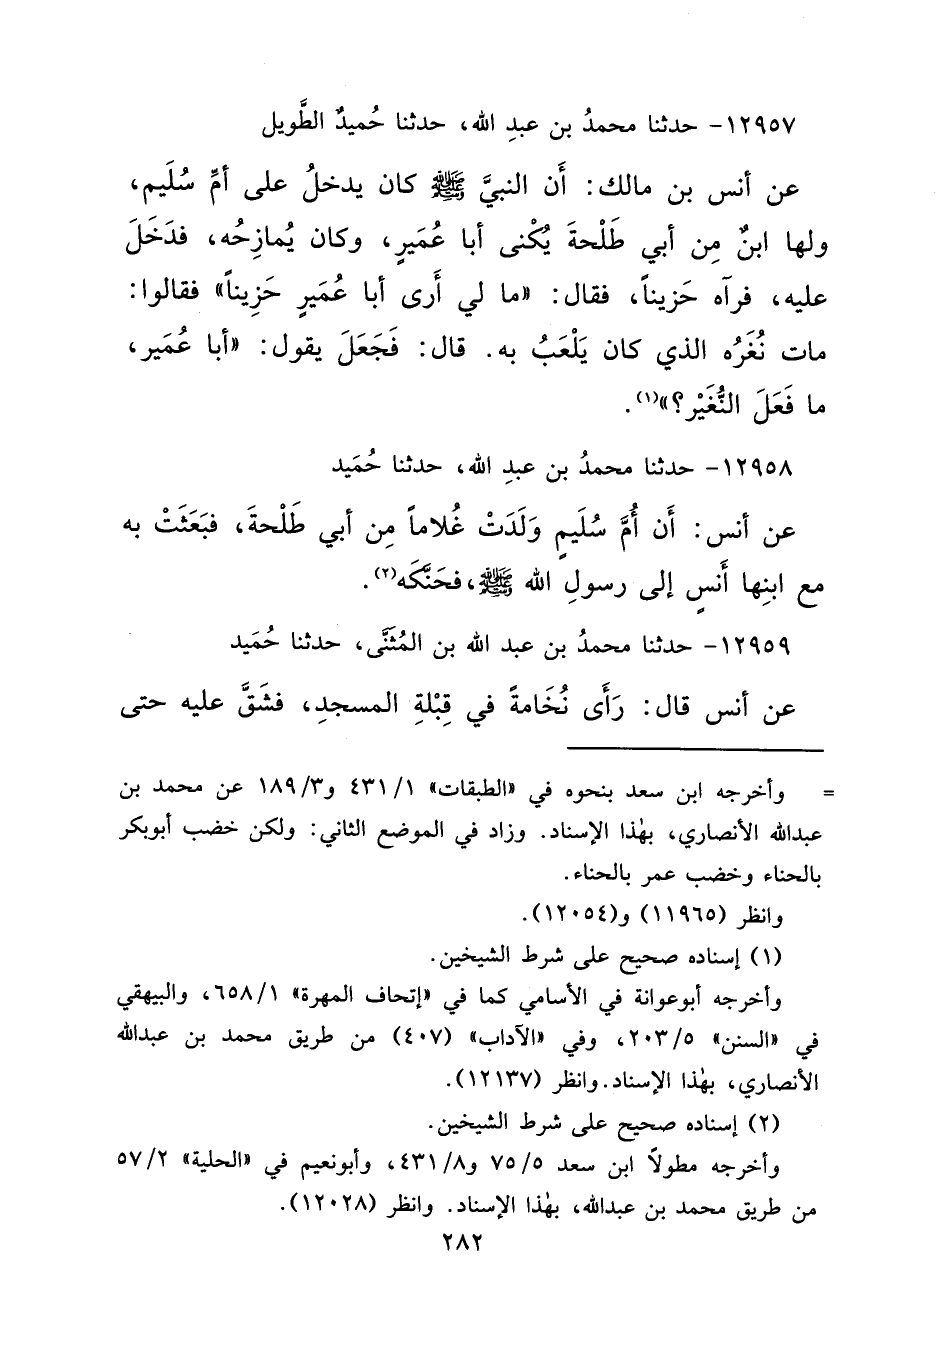 ١٢٩٥٧- حدثنا محمدُ بن عبدِ الله، حدثنا حُميدٌ الطَّويل
عن أنس بن مالك: أَن النبيَّ ﷺ كان يدخلُ على أمِّ سُلَيم،
ولها ابنٌ مِن أبي طَلْحةَ يُكْنى أبا عُمَيرٍ، وكان يُمازِحُه، فدَخَلَ
عليه، فرآه حَزيناً، فقال: «ما لي أَرى أبا عُمَيرٍ حَزِيناً» فقالوا:
مات نُغَرُه الذي كان يَلْعَبُ به. قال: فَجَعَلَ يقول: «أبا عُمَير،
ما فَعَلَ النُّغَيْر؟»(١).
١٢٩٥٨- حدثنا محمدُ بن عبدِ الله، حدثنا حُمَيد
عن أنس: أَن أُمَّ سُلَيمٍ وَلَدَتْ غُلاماً مِن أبي طَلْحةَ، فبَعَثَتْ به
مع ابنِها أَنسٍ إلى رسولِ الله ﷺ، فحَنَّكَه(٢).
١٢٩٥٩- حدثنا محمدُ بن عبد الله بن المُثَنَّى، حدثنا حُمَيد
عن أنس قال: رَأَى نُخَامةً في قِبْلةِ المسجدِ، فشَقَّ عليه حتى
= وأخرجه ابن سعد بنحوه في «الطبقات» ٤٣١/١ و١٨٩/٣ عن محمد بن
عبدالله الأنصاري، بهٰذا الإسناد. وزاد في الموضع الثاني: ولكن خضب أبوبكر
بالحناء وخضب عمر بالحناء.
وانظر (١١٩٦٥) و(١٢٠٥٤).
(١) إسناده صحيح على شرط الشيخين.
وأخرجه أبوعوانة في الأسامي كما في «إتحاف المهرة» ٦٥٨/١، والبيهقي
في «السنن» ٢٠٣/٥، وفي «الآداب» (٤٠٧) من طريق محمد بن عبدالله
الأنصاري، بهٰذا الإسناد. وانظر (١٢١٣٧).
(٢) إسناده صحيح على شرط الشيخين.
وأخرجه مطولاً ابن سعد ٧٥/٥ و٤٣١/٨، وأبونعيم في «الحلية» ٥٧/٢
من طريق محمد بن عبدالله، بهٰذا الإسناد. وانظر (١٢٠٢٨).
٢٨٢